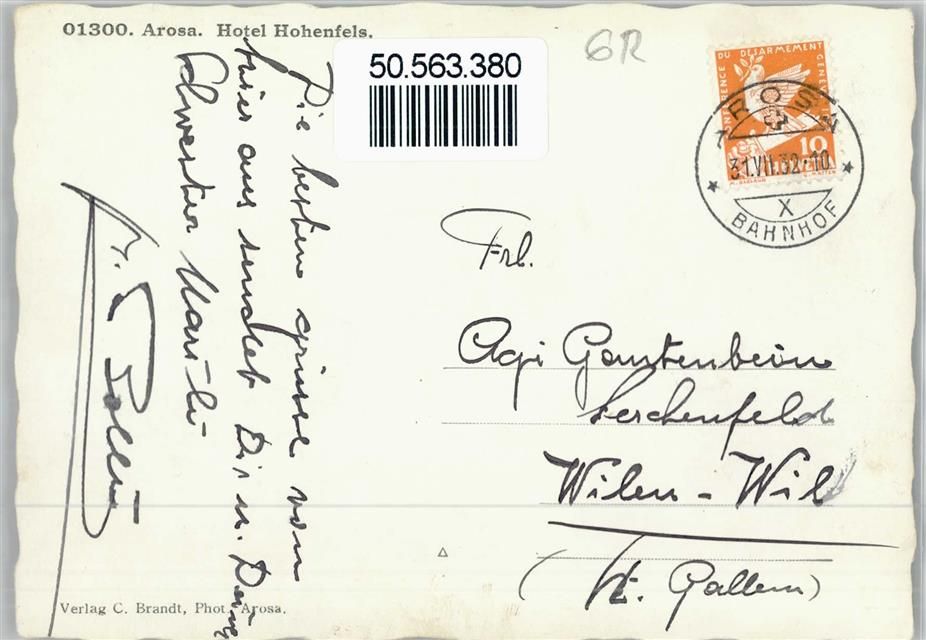 01300. Arosa. Hotel Hohenfels.
50.563.380
GR
CONFERENCE DU DESARMEMENT GENEVE
10
HELVETIA
AROSA
31.VII.32-10
X
BAHNHOF
Die besten grüsse von
hier aus sendet Dir u. Deine
Schwester Marili
Frl.
Agi Gantenbein
Lerchenfeld
Wilen - Wil
(St. Gallen)
Verlag C. Brandt, Phot. Arosa.